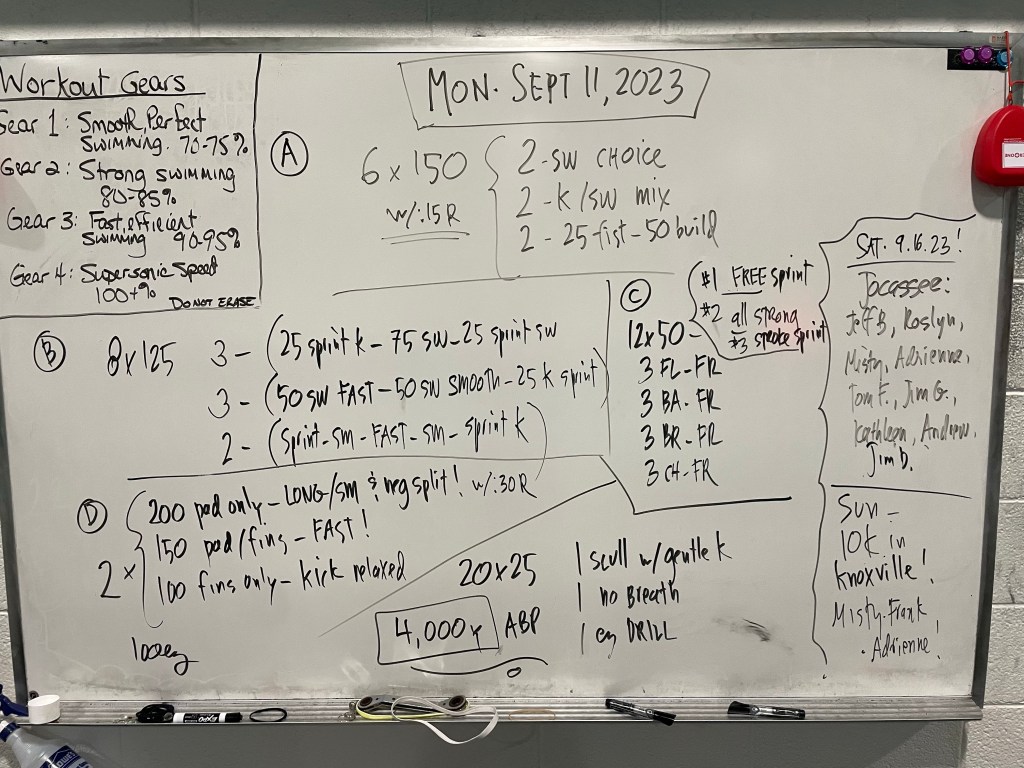 Workout Gears
Gear 1: Smooth, Perfect
Swimming. 70-75%
Gear 2: Strong swimming
80-85%
Gear 3: Fast, efficient
Swimming 90-95%
Gear 4: Supersonic Speed
100+%
DO NOT ERASE
MON. SEPT 11, 2023
A
6 x 150
w/:15 R
2-SW CHOICE
2 - K/SW mix
2 - 25 fist - 50 build
B
8 x 125
3 - (25 sprint k - 75 SW - 25 sprint sw
3 - (50 SW FAST - 50 SW SMOOTH - 25 K sprint)
2 - (Sprint - sm - FAST - sm - sprint k)
C
#1 FREE sprint
#2 all strong
#3 stroke sprint
12x50
3 FL-FR
3 BA-FR
3 BR-FR
3 CH-FR
D
2 x
200 pad only - LONG/sm & neg split! w/:30 R
150 pad/fins - FAST!
100 fins only - kick relaxed
100 ez
20 x 25
1 scull w/gentle k
1 no Breath
1 ez DRILL
4,000 Y ABP
SAT. 9.16.23!
Jocassee:
Jeff B, Roslyn,
Misty, Adrienne,
Tom F., Jim G.,
Kathleen, Andrew,
Jim D.
Sun -
10K in
Knoxville!
Misty. Frank
. Adrienne!
EXPO